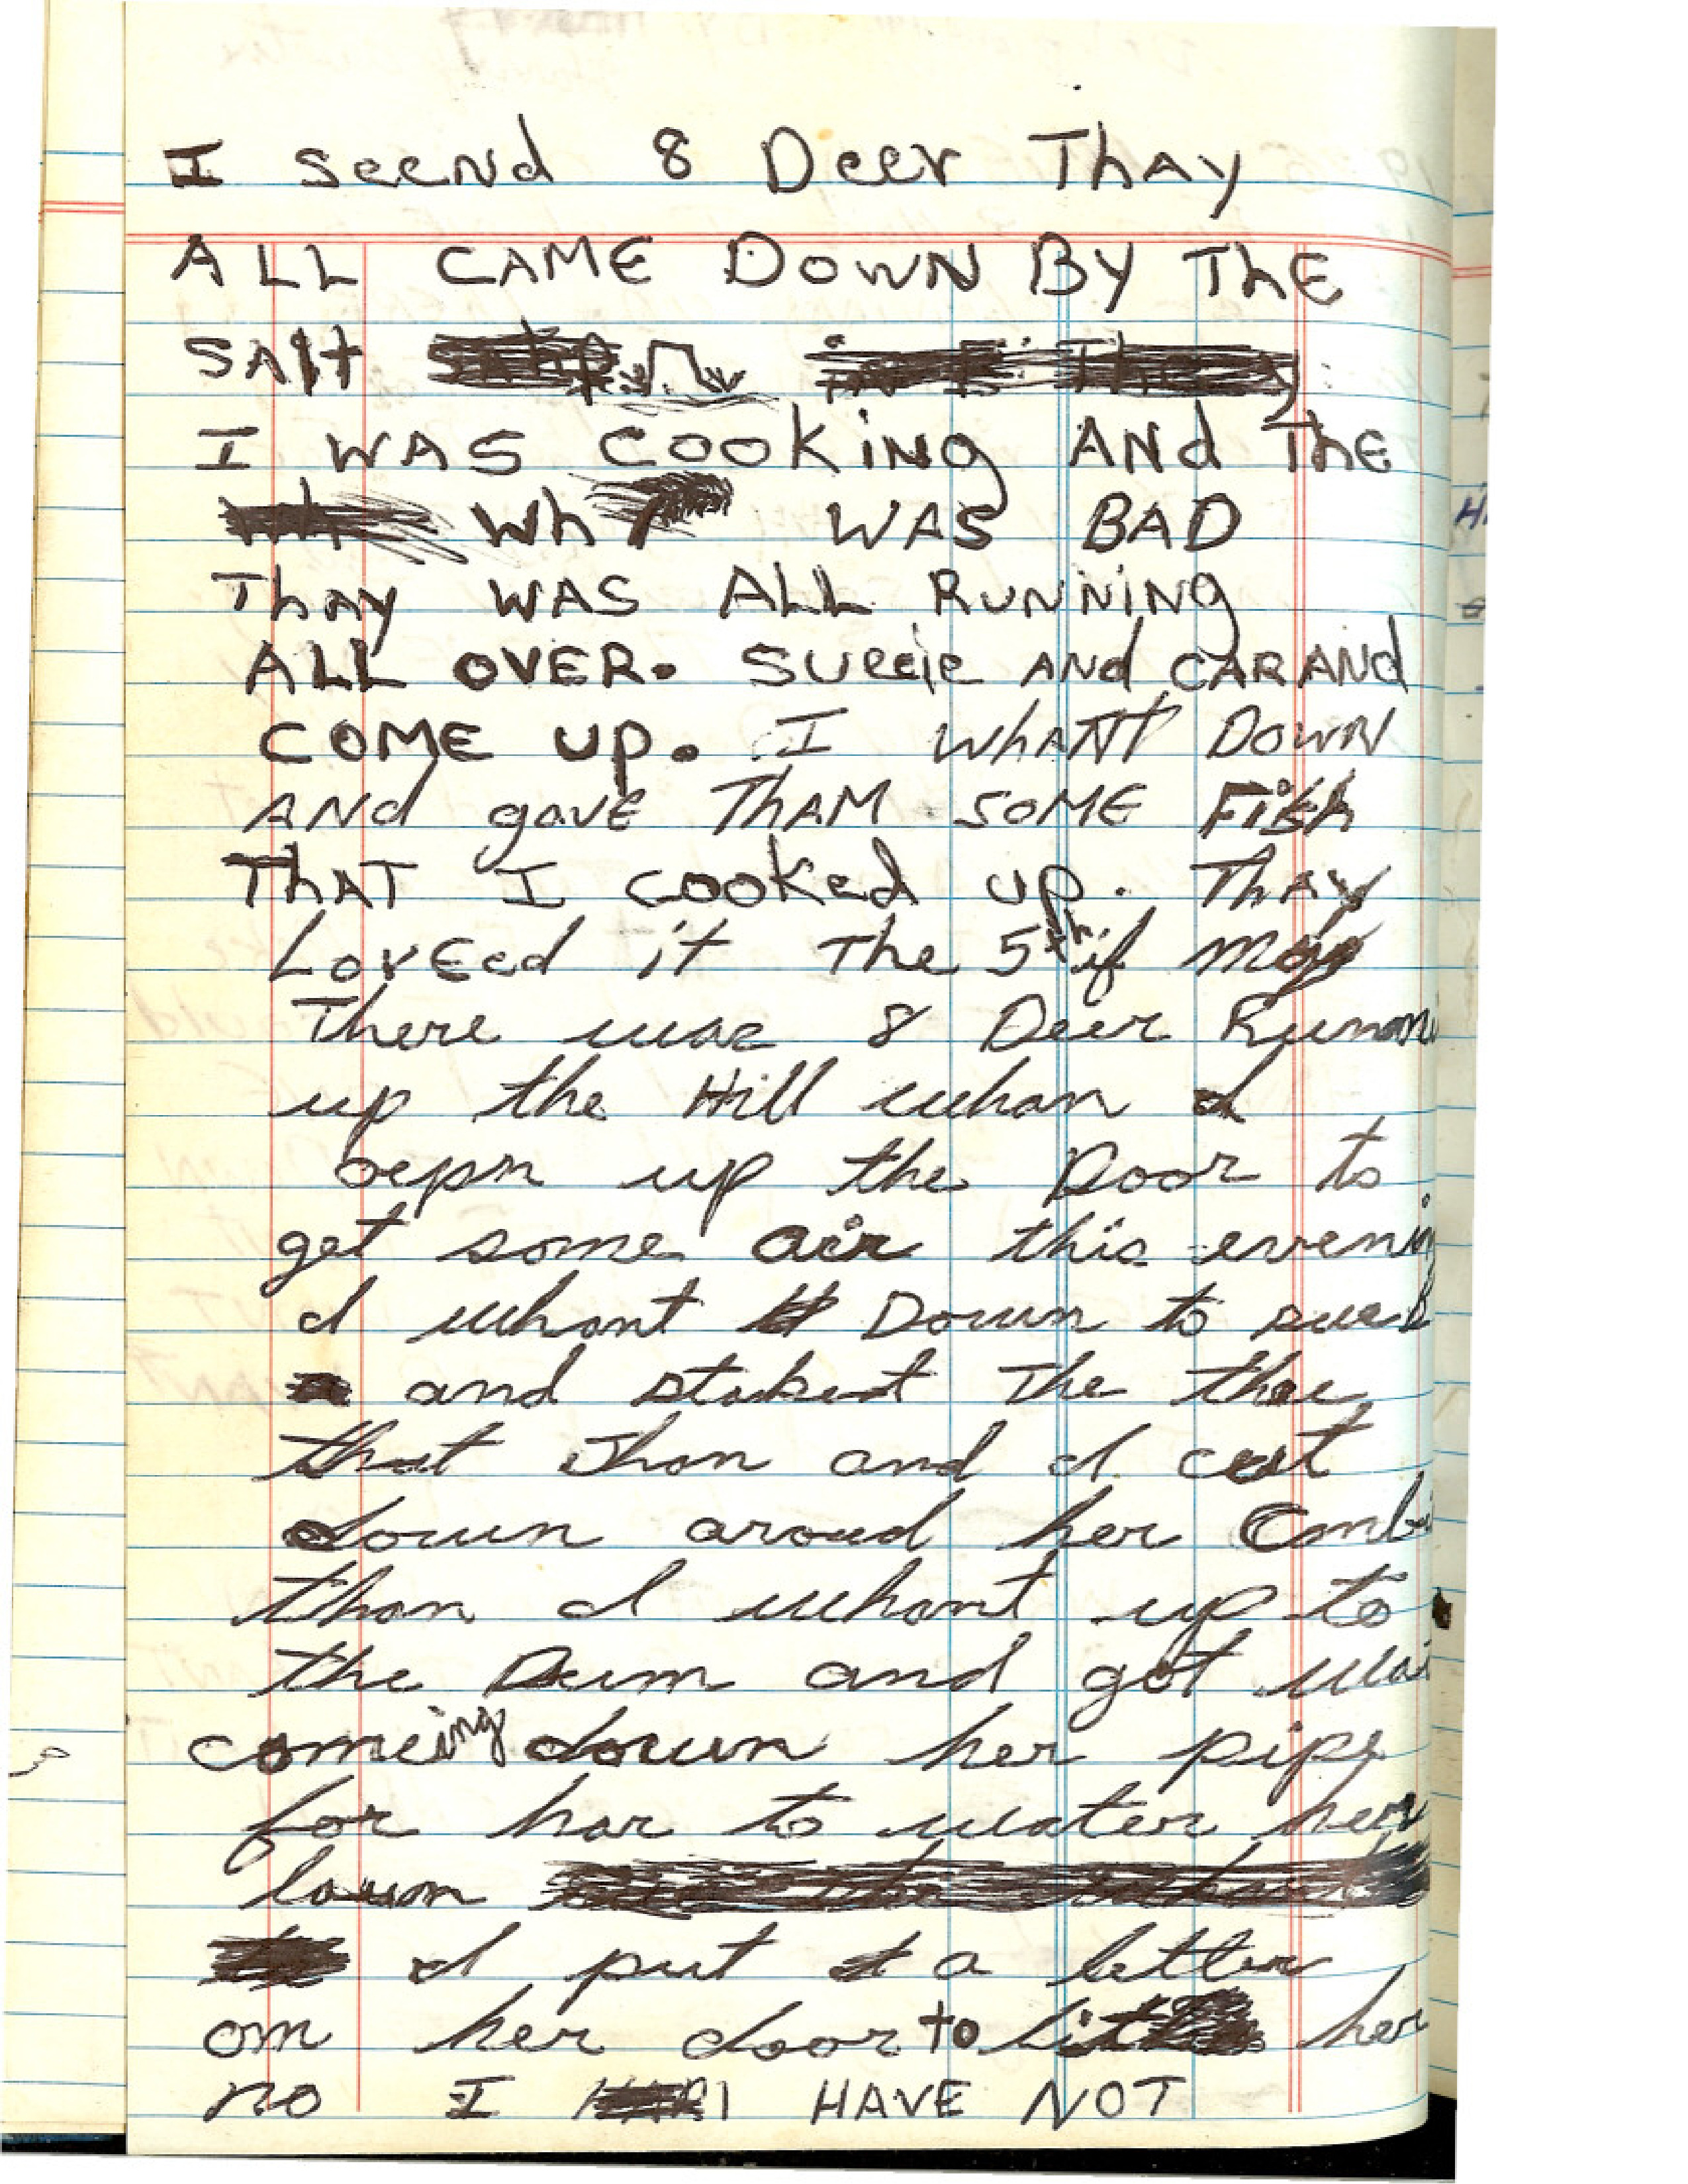 I seend 8 Deer Thay
ALL CAME DOWN BY THE
SAlt
I WAS COOKING ANd THE
Wh WAS BAD
THAY WAS ALL RUNNING
ALL OVER. SUECIE ANd CARANd
COME UP. I WhANT DOWN
ANd gave THAM SOME FISH
THAT I COOKed UP. THAY
LOVEed it The 5th if May
There was 8 Deer Runon
up the Hill whan I
oepn up the Door to
get some air this evenin
I whant Down to sue B
and staket The thee
that Jhon and I cut
down aroud her
than I whant up to
the Dum and got wat
comeing down her pipe
for har to water her
lawn
I put a letter
on her door to let her
no I HAVE NOT